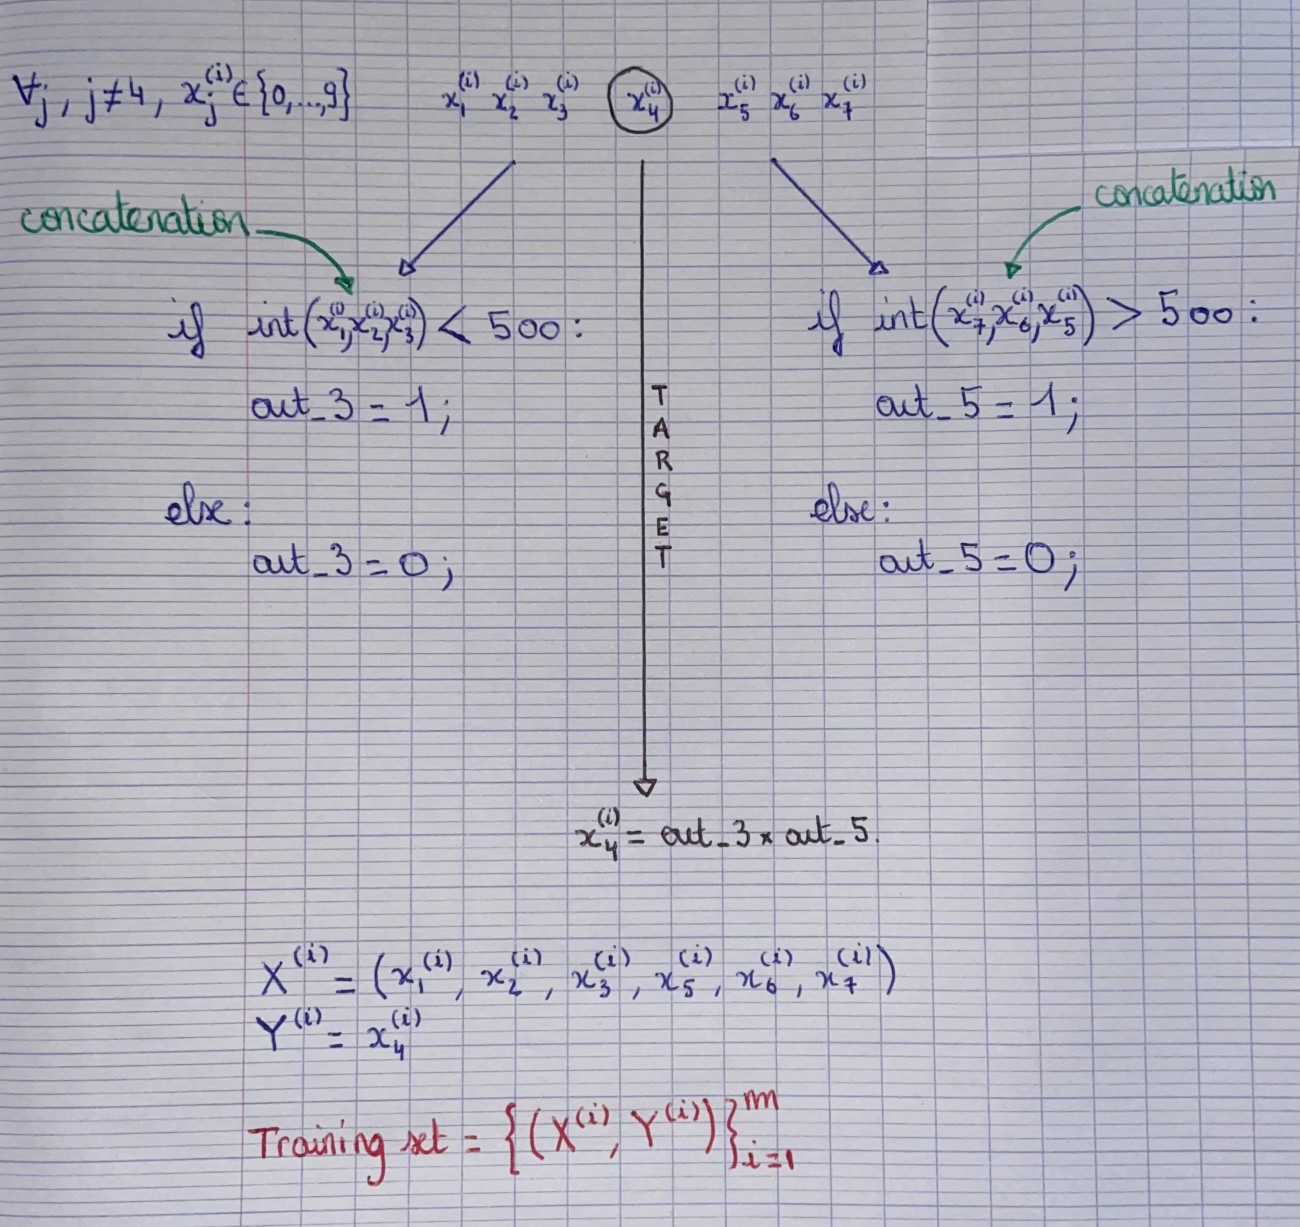 ∀j, j≠4, x_j^(i) ∈ {0,...,9} x_1^(i) x_2^(i) x_3^(i) x_4^(i) x_5^(i) x_6^(i) x_7^(i)
concatenation
concatenation
if int(x_1^(i),x_2^(i),x_3^(i)) < 500:
out_3 = 1;
else:
out_3 = 0;
TARGET
if int(x_7^(i),x_6^(i),x_5^(i)) > 500:
out_5 = 1;
else:
out_5 = 0;
x_4^(i) = out_3 × out_5.
X^(i) = (x_1^(i), x_2^(i), x_3^(i), x_5^(i), x_6^(i), x_7^(i))
Y^(i) = x_4^(i)
Training set = {(X^(i), Y^(i))}_{i=1}^m